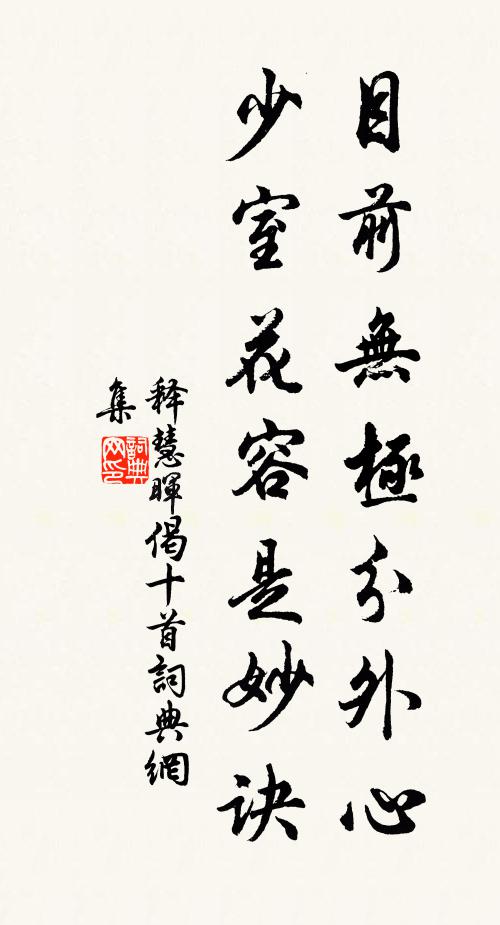 目前無極分外心
少室花容是妙訣
释慧暉偈十首詞典網
集
詞典
网印